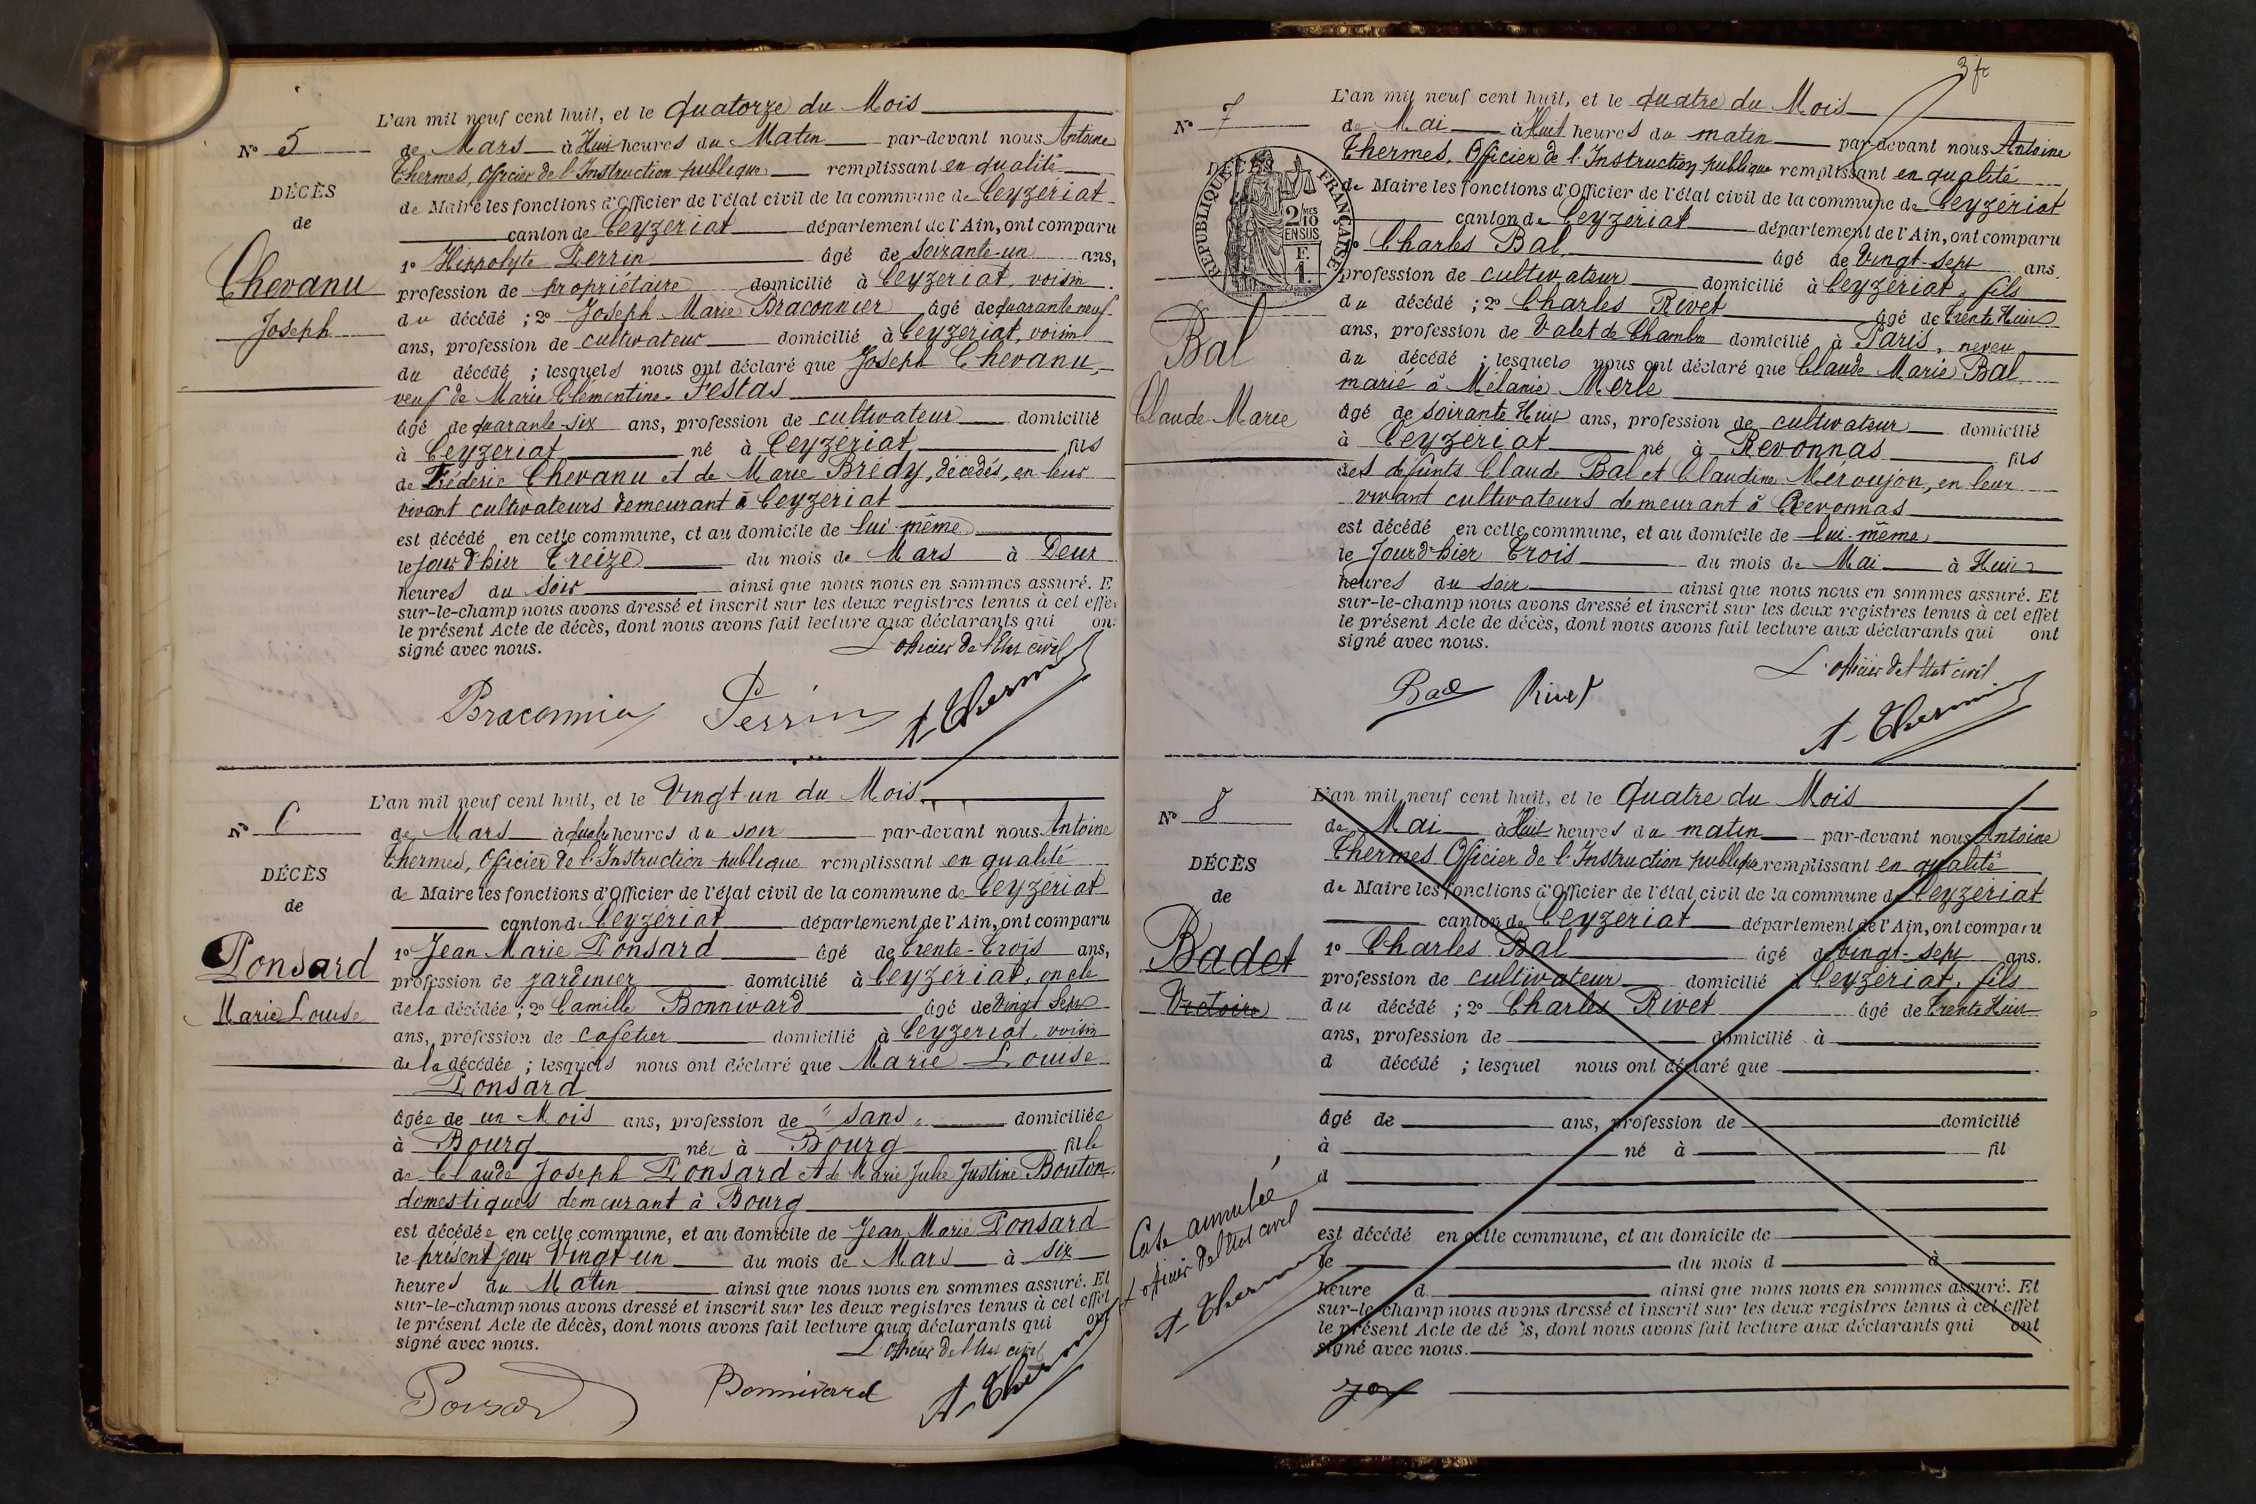 L'an mil neuf cent huit, et le Quatorze du Mois
N° 5
de Mars à Huit heures du Matin par-devant nous Antoine
Thermes, Officier de l'Instruction publique remplissant en qualité
DÉCÈS
de Maire les fonctions d'Officier de l'état civil de la commune de Ceyzeriat
de
canton de Ceyzeriat département de l'Ain, ont comparu
1° Hippolyte Perrin âgé de soixante-un ans,
Chevanu
profession de propriétaire domicilié à Ceyzeriat, voisin
Joseph
du décédé ; 2° Joseph Marie Braconnier âgé de quarante neuf
ans, profession de cultivateur domicilié à Ceyzeriat, voisin
du décédé ; lesquels nous ont déclaré que Joseph Chevanu,
veuf de Marie Clémentine Festas
âgé de quarante-six ans, profession de cultivateur domicilié
à Ceyzeriat né à Ceyzériat fils
de Frédéric Chevanu et de Marie Brédy, décédés, en leur
vivant cultivateurs demeurant à Ceyzeriat
est décédé en cette commune, et au domicile de lui-même
le jour d'hier Treize du mois de Mars à Deux
heures du soir ainsi que nous nous en sommes assuré. E
sur-le-champ nous avons dressé et inscrit sur les deux registres tenus à cet effe
le présent Acte de décès, dont nous avons fait lecture aux déclarants qui on
signé avec nous.
L'officier de l'Etat civil
Braconnier Perrin A. Thermes
L'an mil neuf cent huit, et le Vingt-un du Mois
N° 6
de Mars à quatre heures du soir par-devant nous Antoine
Thermes, Officier de l'Instruction publique remplissant en qualité
DÉCÈS
de Maire les fonctions d'Officier de l'état civil de la commune de Ceyzériat
de
canton de Ceyzériat département de l'Ain, ont comparu
Ponsard
1° Jean Marie Ponsard âgé de Trente-Trois ans,
profession de jardinier domicilié à Ceyzeriat, oncle
Marie Louise
de la décédée ; 2° Camille Bonnivard âgé de Vingt Sept
ans, profession de cafétier domicilié à Ceyzeriat, voisin
de la décédée ; lesquels nous ont déclaré que Marie Louise
Ponsard
âgée de un Mois ans, profession de "sans" domiciliée
à Bourg née à Bourg fille
de Claude Joseph Ponsard et de Marie Julie Justine Bouton
domestiques demeurant à Bourg
est décédée en cette commune, et au domicile de Jean Marie Ponsard
le présent jour Vingt un du mois de Mars à six
heures du Matin ainsi que nous nous en sommes assuré. Et
sur-le-champ nous avons dressé et inscrit sur les deux registres tenus à cet effet
le présent Acte de décès, dont nous avons fait lecture aux déclarants qui ont
signé avec nous.
L'officier de l'Etat civil
Ponsard Bonnivard A. Thermes
3 fc
L'an mil neuf cent huit, et le quatre du Mois
N° 7
de Mai à Huit heures du matin par-devant nous Antoine
Thermes, Officier de l'Instruction publique remplissant en qualité
DÉCÈS
de Maire les fonctions d'Officier de l'état civil de la commune de Ceyzeriat
RÉPUBLIQUE FRANÇAISE
2/10 MES
EN SUS
F.
1.
canton de Ceyzeriat département de l'Ain, ont comparu
1° Charles Bal, âgé de Vingt-sept ans.
profession de cultivateur domicilié à Ceyzériat, fils
du décédé ; 2° Charles Rivet âgé de Trente Huit
Bal
ans, profession de Valet de Chambre domicilié à Paris, neveu
du décédé ; lesquels nous ont déclaré que Claude Marie Bal
marié à Mélanie Merle
Claude Marie
âgé de soixante Huit ans, profession de cultivateur domicilié
à Ceyzériat né à Revonnas fils
des défunts Claude Bal et Claudine Méroujon, en leur
vivant cultivateurs demeurant à Revonnas
est décédé en cette commune, et au domicile de lui-même
le Jour d'hier Trois du mois de Mai à Huit
heures du soir ainsi que nous nous en sommes assuré. Et
sur-le-champ nous avons dressé et inscrit sur les deux registres tenus à cet effet
le présent Acte de décès, dont nous avons fait lecture aux déclarants qui ont
signé avec nous.
L'officier de l'Etat civil
Bal Rivet A. Thermes
L'an mil neuf cent huit, et le Quatre du Mois
N° 8
de Mai à Huit heures du matin par-devant nous Antoine
Thermes Officier de l'Instruction publique remplissant en qualité
DÉCÈS
de Maire les fonctions d'Officier de l'état civil de la commune de Ceyzériat
de
canton de Ceyzeriat département de l'Ain, ont comparu
Badet
1° Charles Bal âgé de vingt-sept ans.
profession de cultivateur domicilié à Ceyzériat, fils
Victoire
du décédé ; 2° Charles Rivet âgé de Trente Huit
ans, profession de domicilié à
d décédé ; lesquel nous ont déclaré que
âgé de ans, profession de domicilié
à né à fil
d
est décédé en cette commune, et au domicile de
le du mois d à
heure d ainsi que nous nous en sommes assuré. Et
sur-le-champ nous avons dressé et inscrit sur les deux registres tenus à cet effet
le présent Acte de décès, dont nous avons fait lecture aux déclarants qui ont
signé avec nous.
Case annulée
L'officier de l'Etat civil
A. Thermes